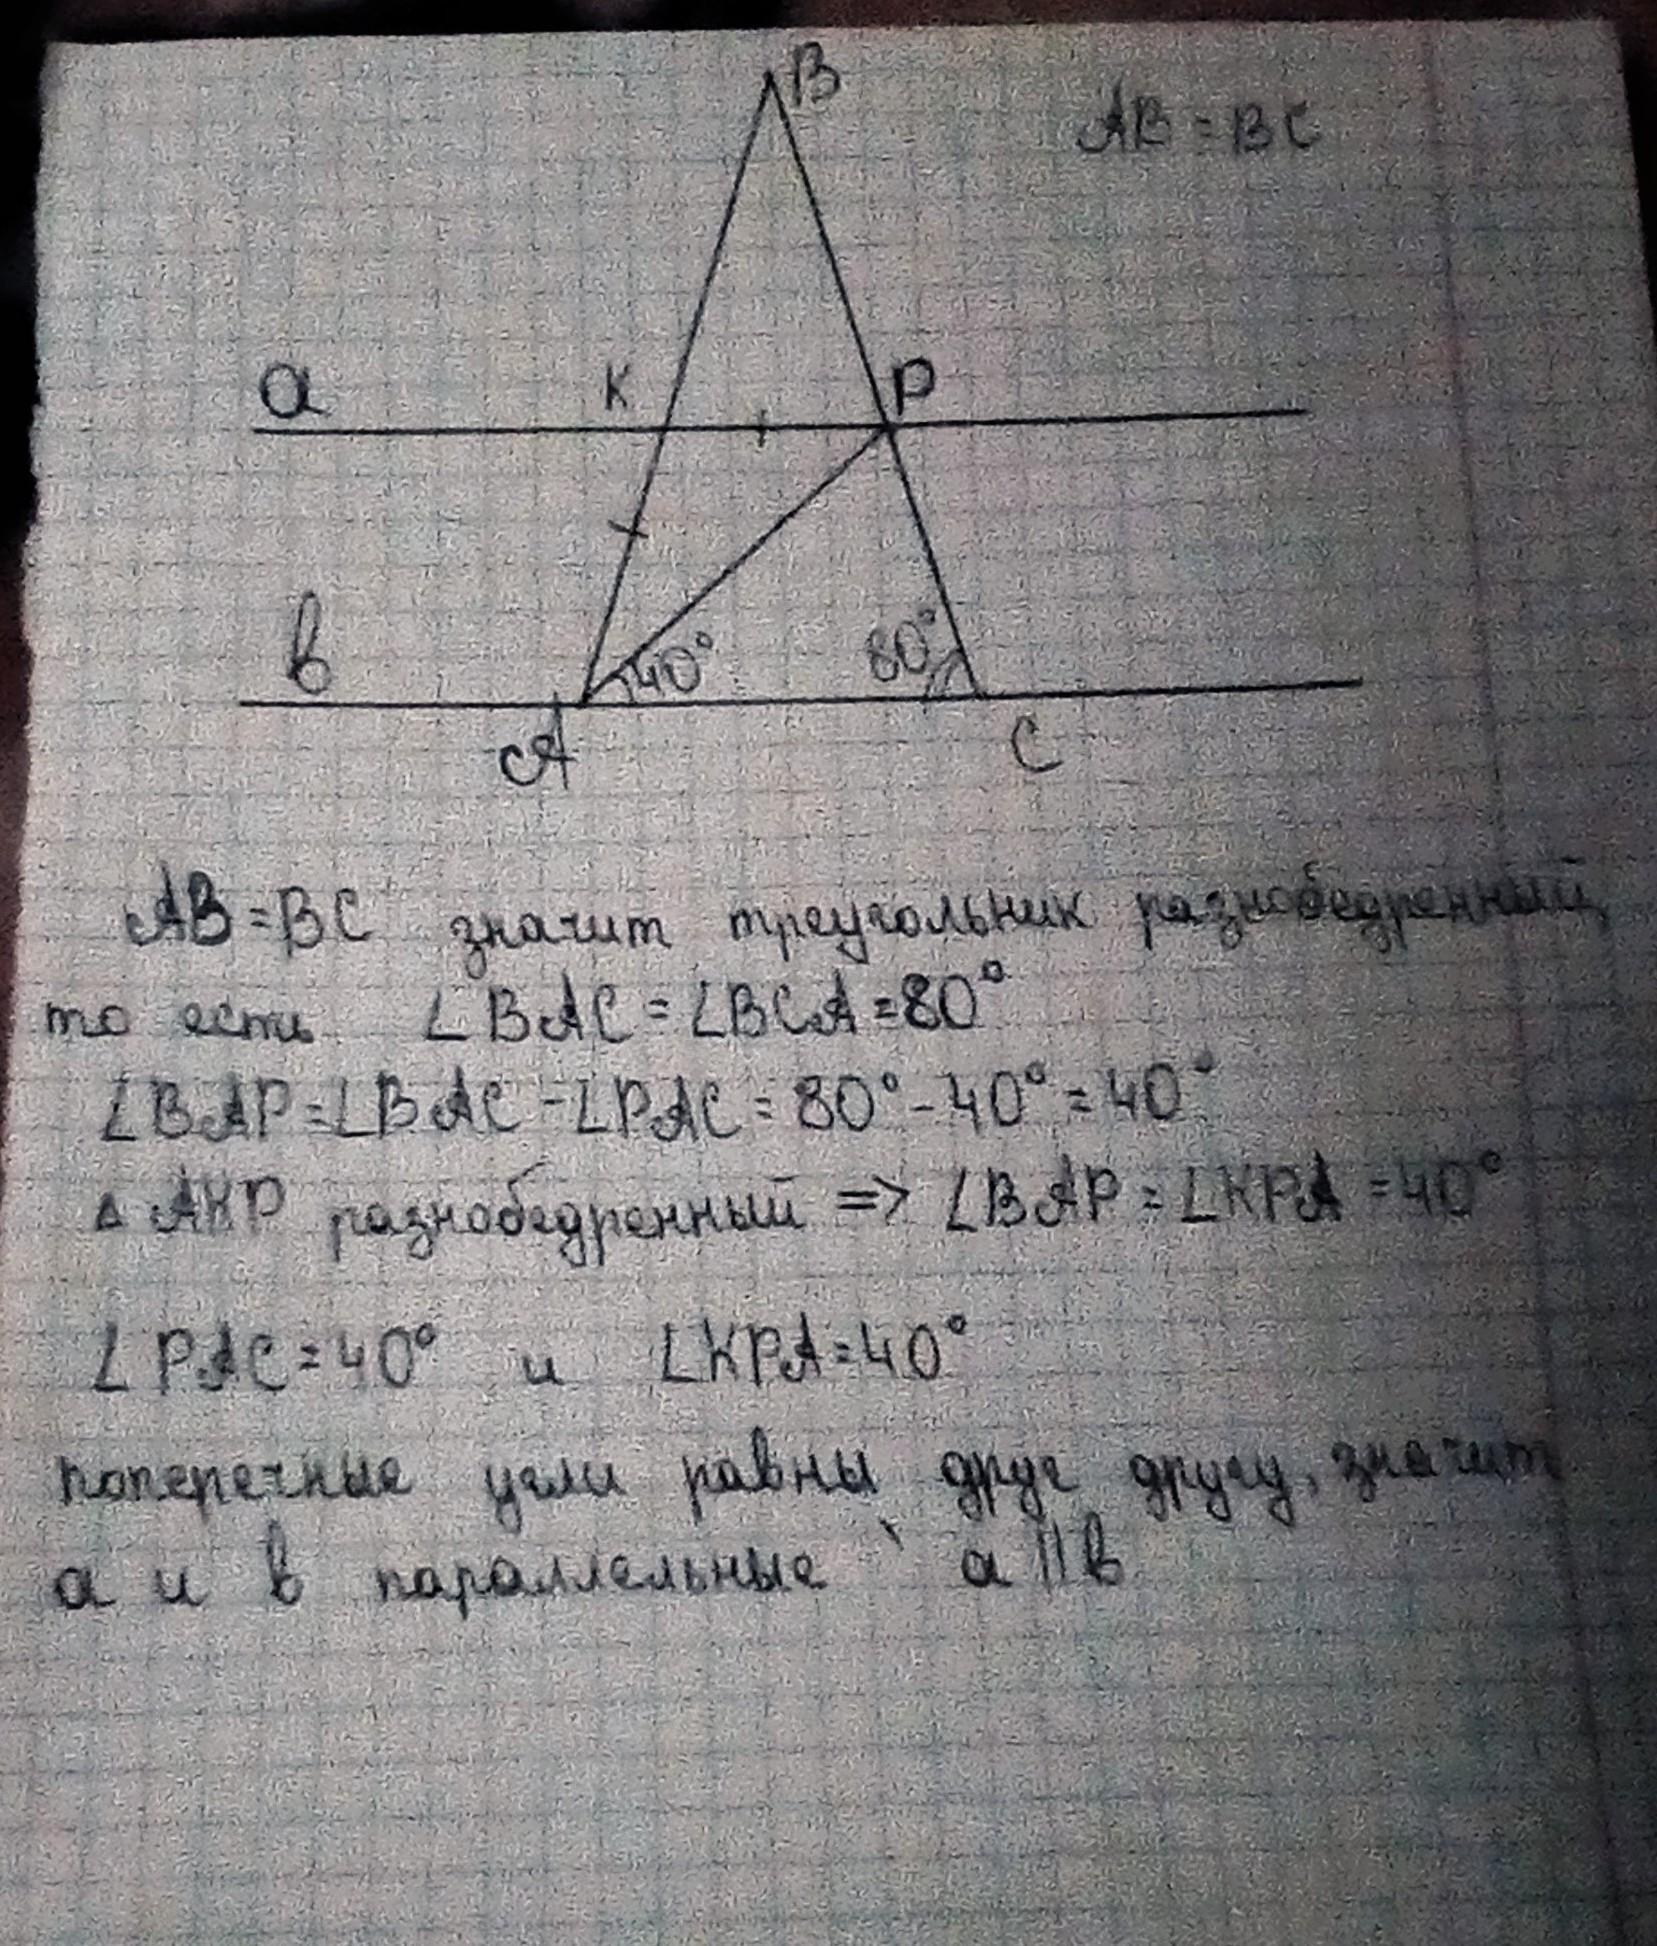 B
AB = BC
a K P
в 40° 80°
A C
AB = BC значит треугольник разнобедренный
то есть ∠BAC = ∠BCA = 80°
∠BAP = ∠BAC - ∠PAC = 80° - 40° = 40°
△ AKP разнобедренный => ∠BAP = ∠KPA = 40°
∠PAC = 40° и ∠KPA = 40°
поперечные угли равны друг другу, значит
a и в параллельные a || в